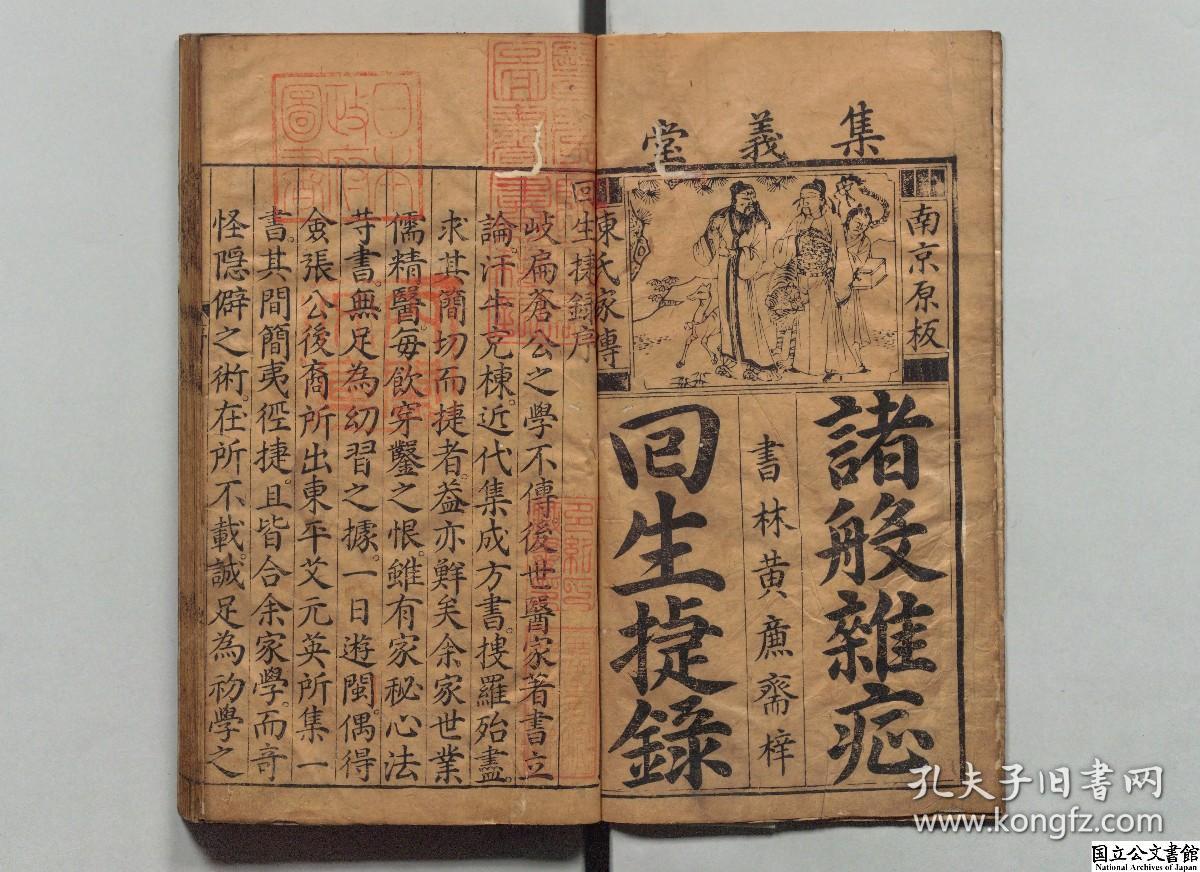 集義堂
南京原板
陳氏家傳
諸般雜症
書林黃㢘齋梓
回生捷錄
回生捷錄序
岐扁蒼公之學不傳後世醫家著書立
論。汗牛充棟。近代集成方書。搜羅殆盡。
求其簡切而捷者。葢亦鮮矣余家世業
儒精醫每飲穿鑿之恨。雖有家秘心法
䒭書。無足為幼習之據。一日遊閩偶得
僉張公後裔所出東平艾元英所集一
書。其間簡夷徑捷。且皆合余家學。而奇
怪隱僻之術。在所不載。誠足為初學之
日本
政府
圖書
孔夫子旧书网
www.kongfz.com
国立公文書館
National Archives of Japan